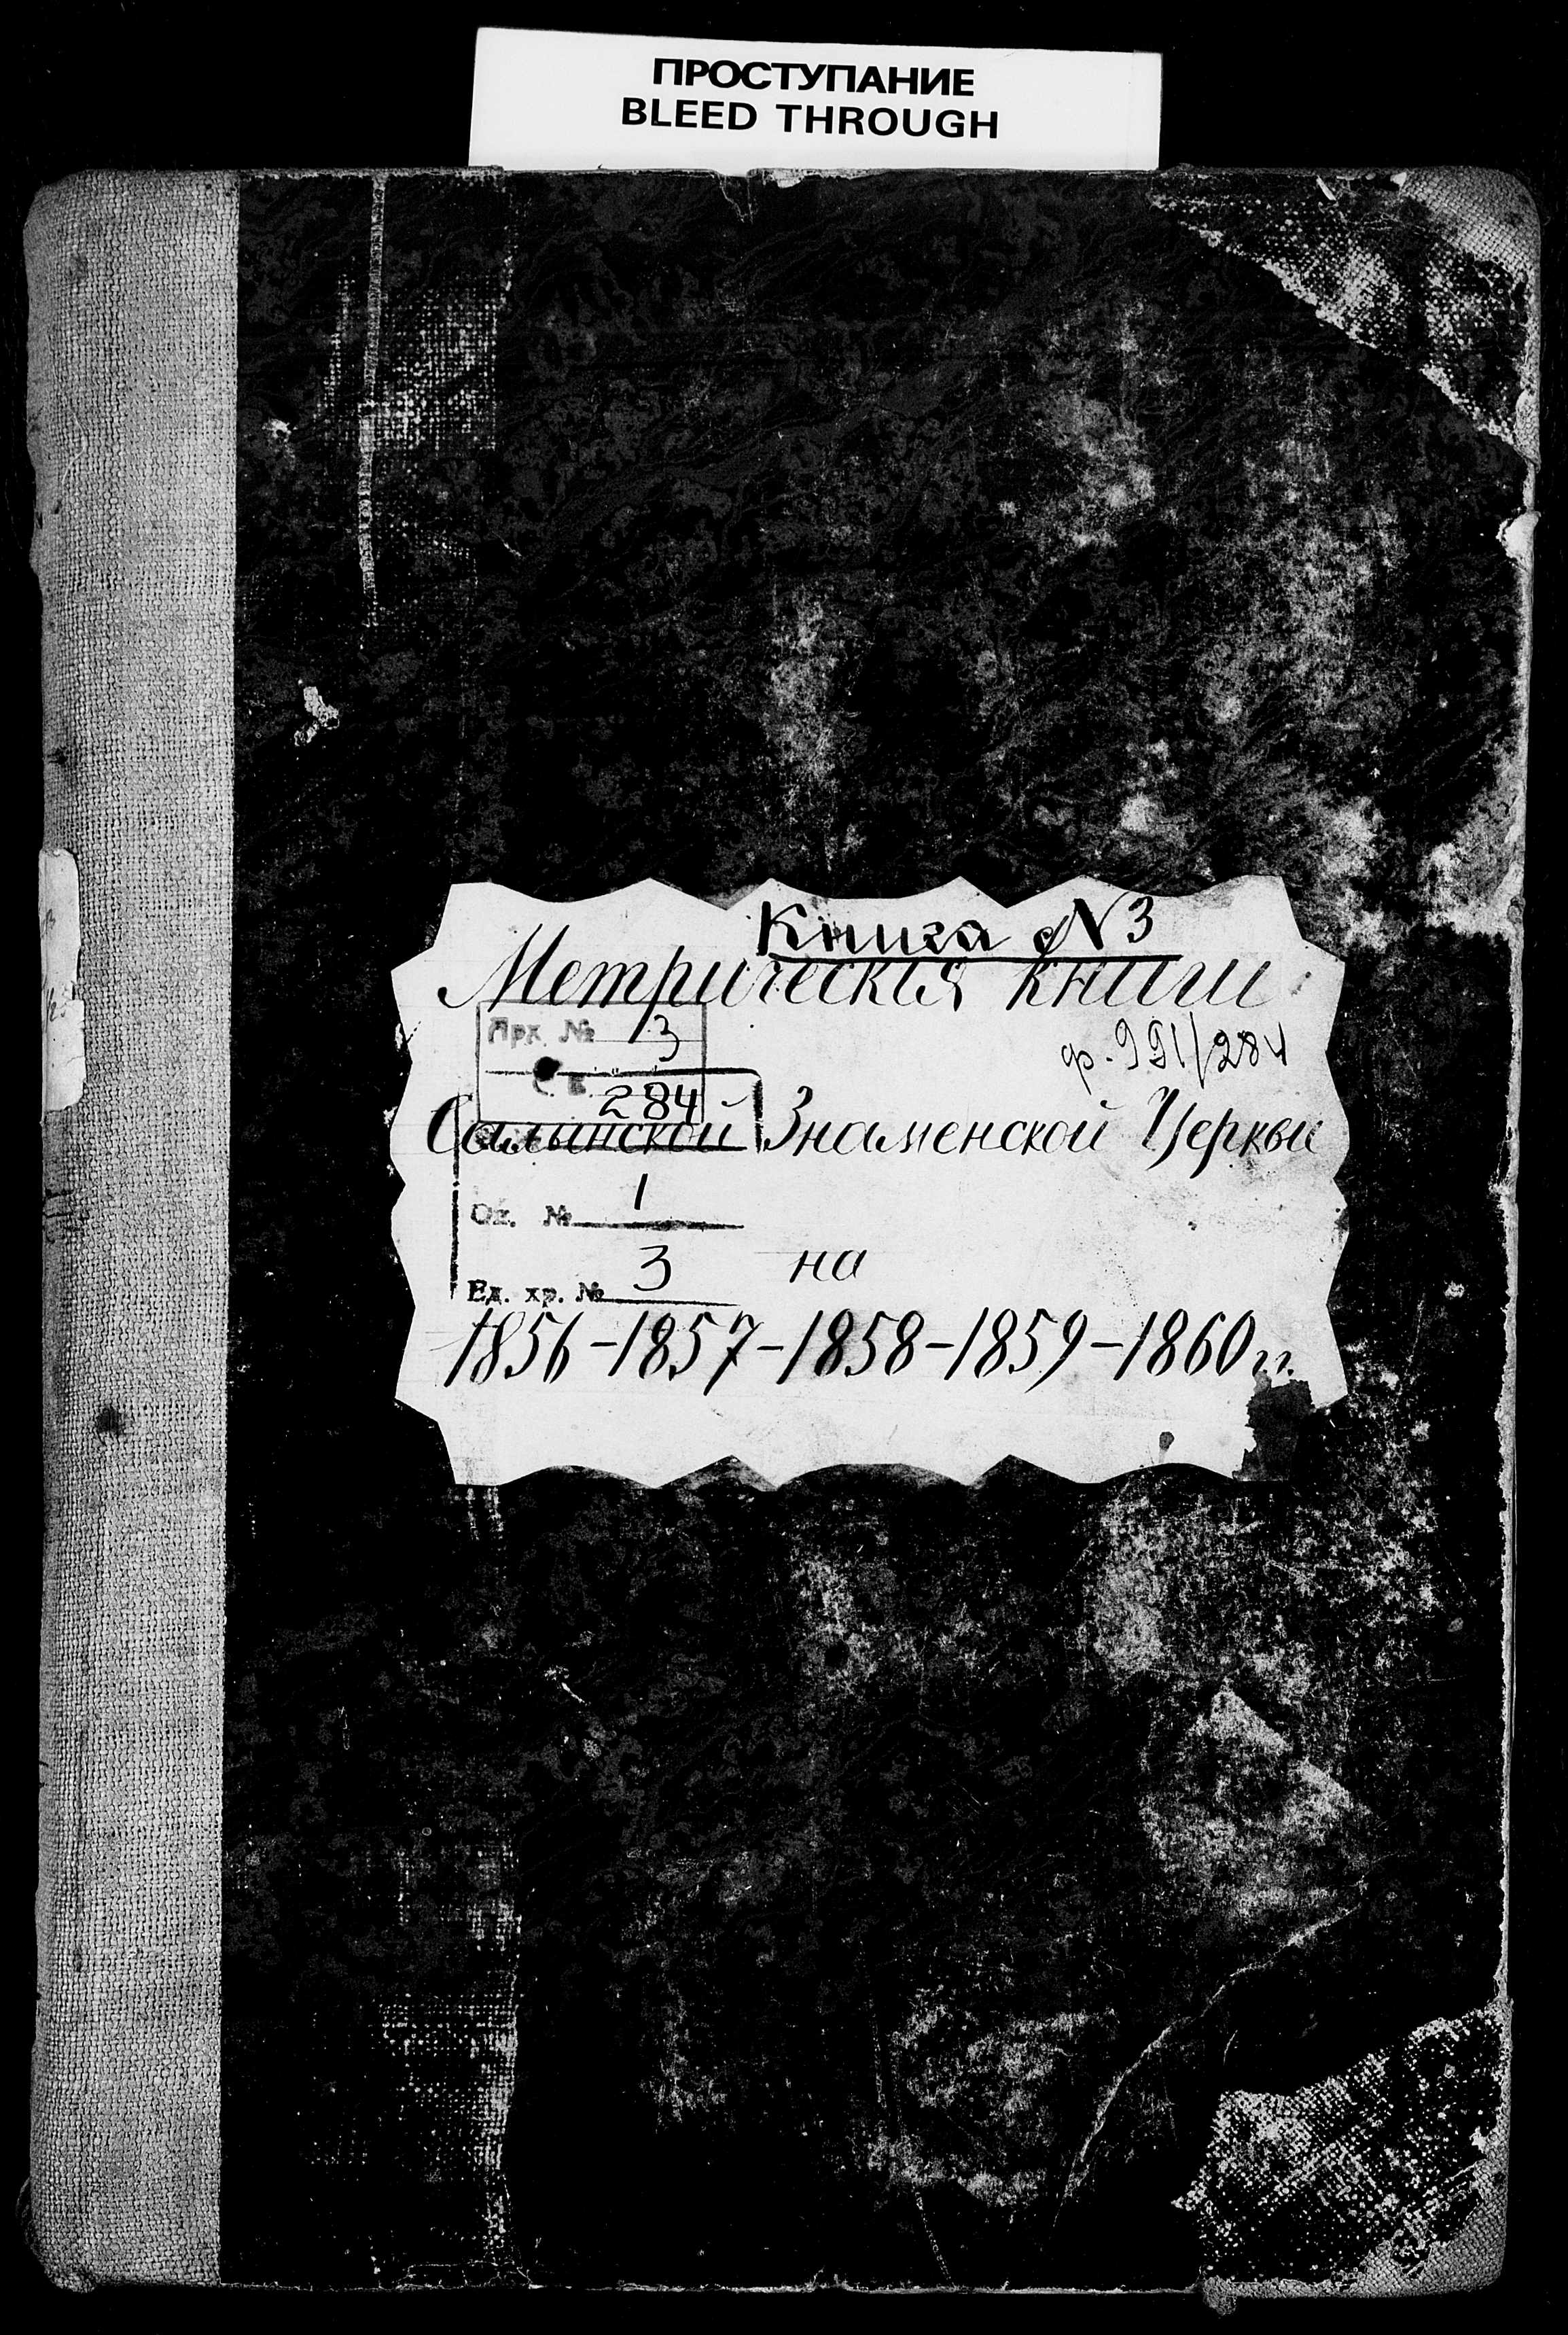 ПРОСТУПАНИЕ
BLEED THROUGH
Книга №3
Метрическія книги
Арх. № 3
ф. 991/284
284
Знаменской Церкви
Оп. № 1
на
Ед. хр. № 3
1856-1857-1858-1859-1860 гг.